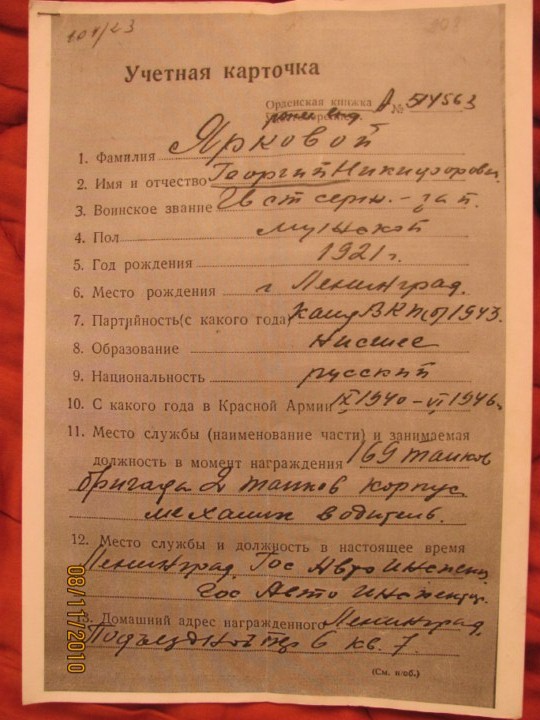 101/23
Учетная карточка
Орденская книжка А № 514563
1. Фамилия Ярковой
2. Имя и отчество Георгий Никифорович
3. Воинское звание Гв ст серж. - зап.
4. Пол мужской
5. Год рождения 1921 г.
6. Место рождения г Ленинград.
7. Партийность (с какого года) канд ВКП(б) 1943.
8. Образование низшее
9. Национальность русский
10. С какого года в Красной Армии IX 1940 - VI 1946 г.
11. Место службы (наименование части) и занимаемая
должность в момент награждения 169 танков
бригада 2 танков корпус
механик водитель.
12. Место службы и должность в настоящее время
Ленинград Гос Авто Инспекц.
Гос Авто Инспектор.
13. Домашний адрес награжденного Ленинград,
пер 6 кв. 7.
(См. н/об.)
08/11/2010